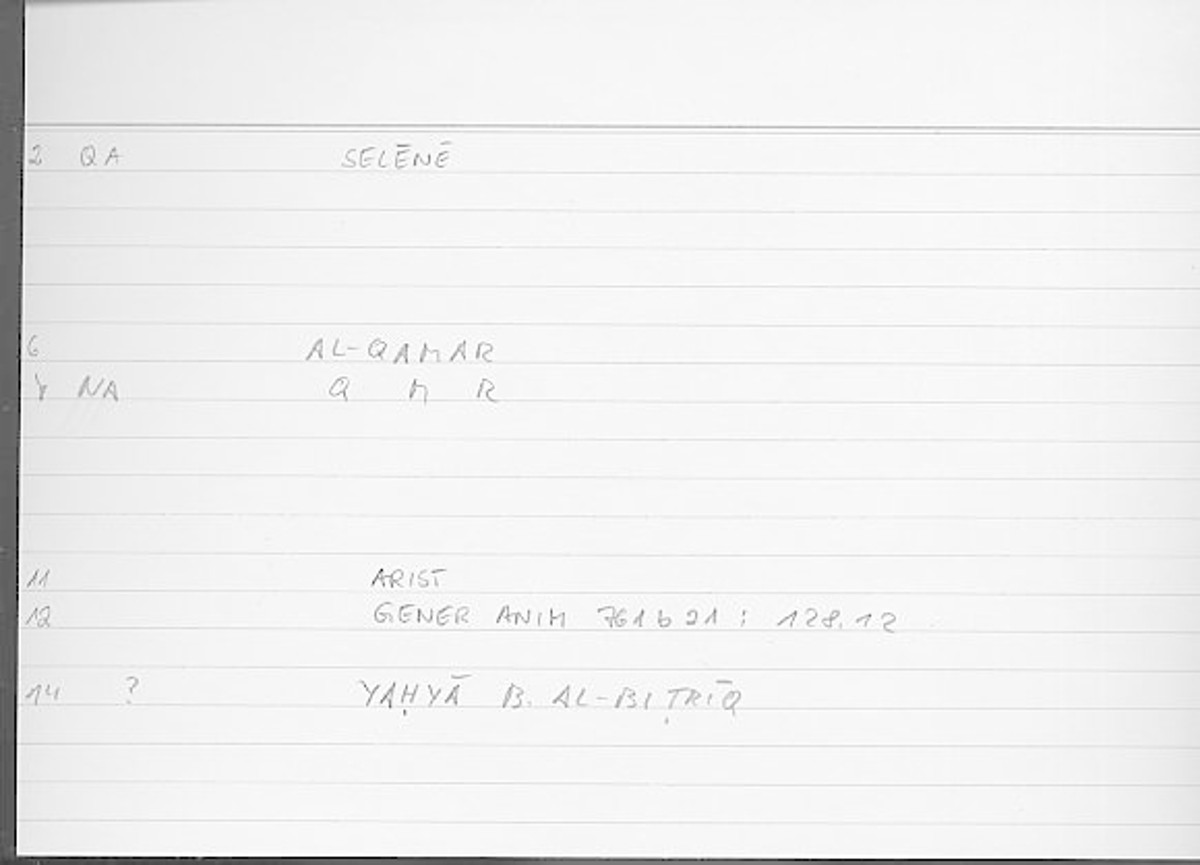 2 QA SELĒNĒ
6 AL-QAMAR
NA Q M R
11 ARIST
12 GENER ANIM 761 b 21 : 128.12
14 ? YAḤYĀ B. AL-BIṬRĪQ